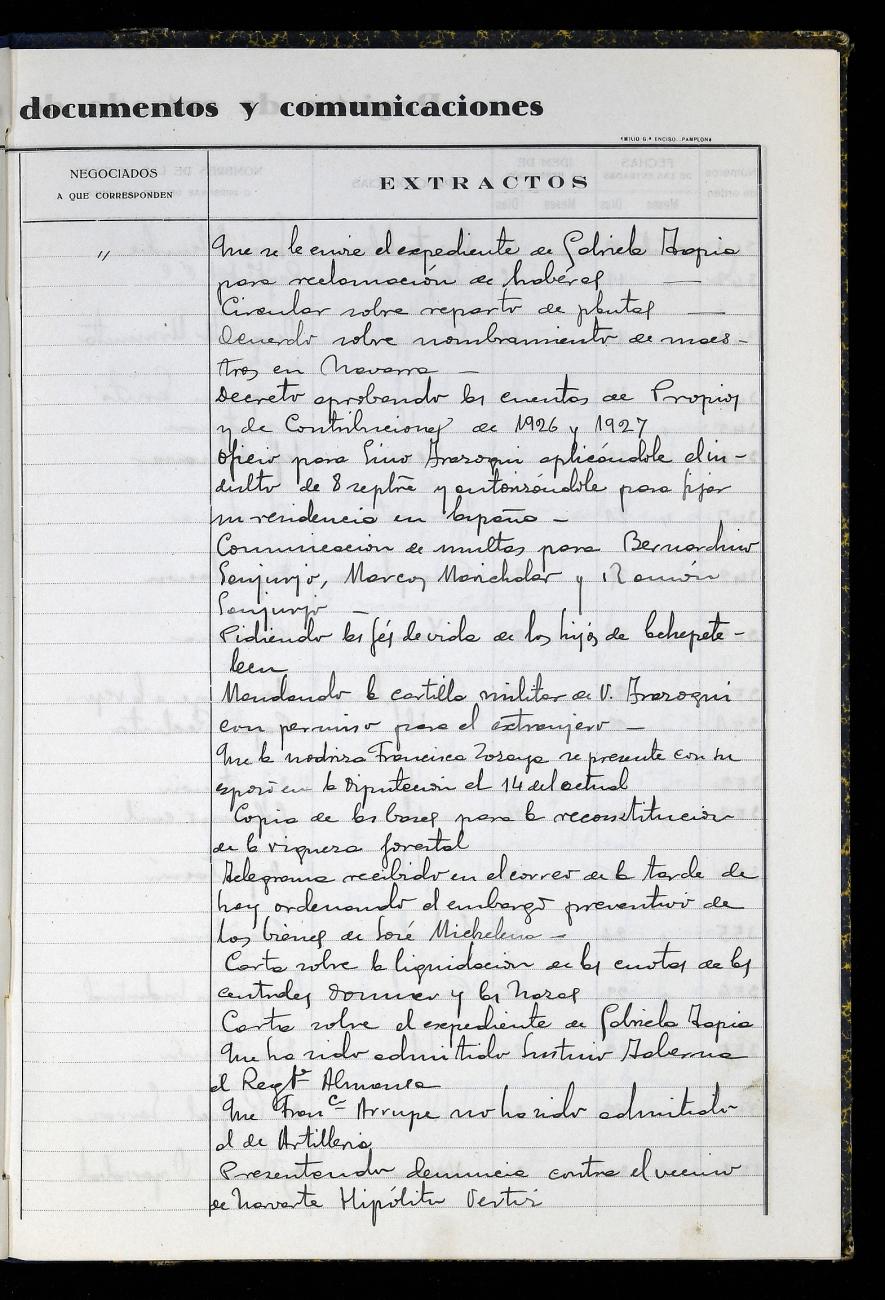 documentos y comunicaciones
EMILIO G.ª ENCISO.-PAMPLONA
NEGOCIADOS
A QUE CORRESPONDEN
EXTRACTOS
"
Que se le envie el expediente de Gabriela Tapia
para reclamación de haberes —
Circular sobre reparto de plantas —
Acuerdo sobre nombramiento de maes-
tros en Navarra —
Decreto aprobando las cuentas de Propios
y de Contribuciones de 1926 y 1927
Oficio para Lino Arazoqui aplicándole el in-
dulto de 8 septbre y autorizándole para fijar
su residencia en España —
Comunicacion de multas para Bernardino
Sanjurjo, Marcos Marichalar y Ramón
Sanjurjo —
Pidiendo las fés de vida de los hijos de
Mandando la cartilla militar de V. Arazoqui
con permiso para el extranjero —
Que la nodriza Francisca Zozaya se presente con su
esposo en la Diputación el 14 del actual
Copia de las bases para la reconstitucion
de la riqueza forestal
Telegrama recibido en el correo de la tarde de
hoy ordenando el embargo preventivo de
los bienes de José Michelena —
Carta sobre la liquidacion de las cuotas de las
centrales y las
Carta sobre el expediente de Gabriela Tapia
Que ha sido admitido Taberna
al Regtº Almansa
Que Franca Arrupe no ha sido admitido
al de Artilleria
Presentando denuncia contra el vecino
de Narvarte Hipólito